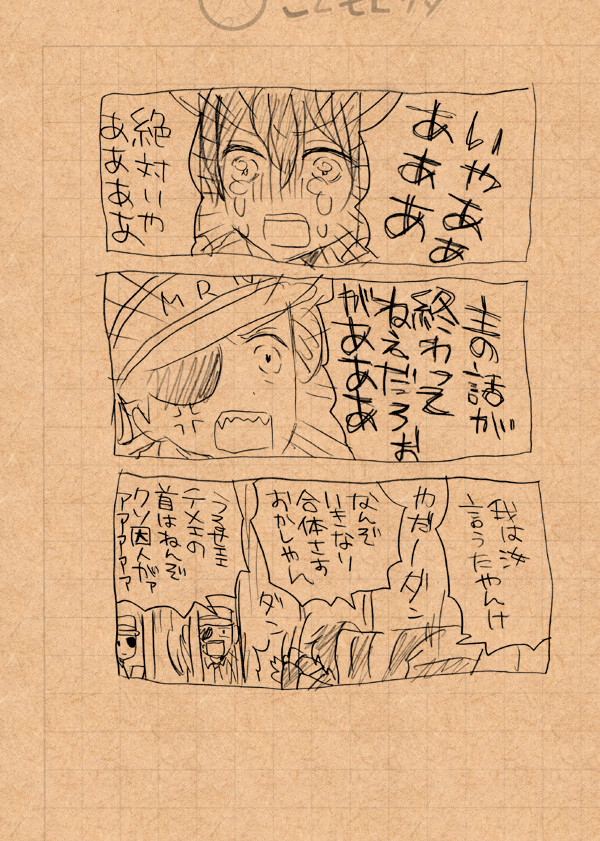 いやあぁ
あああ
ああ
絶対いや
ああああ
MR
主の話が
終わって
ねえだろお
があああ
我は汝
言うたやんけ
やだーダン
ダン
なんぞ
いきない
合体さす
おかしゃん
テメェの
首はねんぞ
クソ囚人がァ
アアアアア